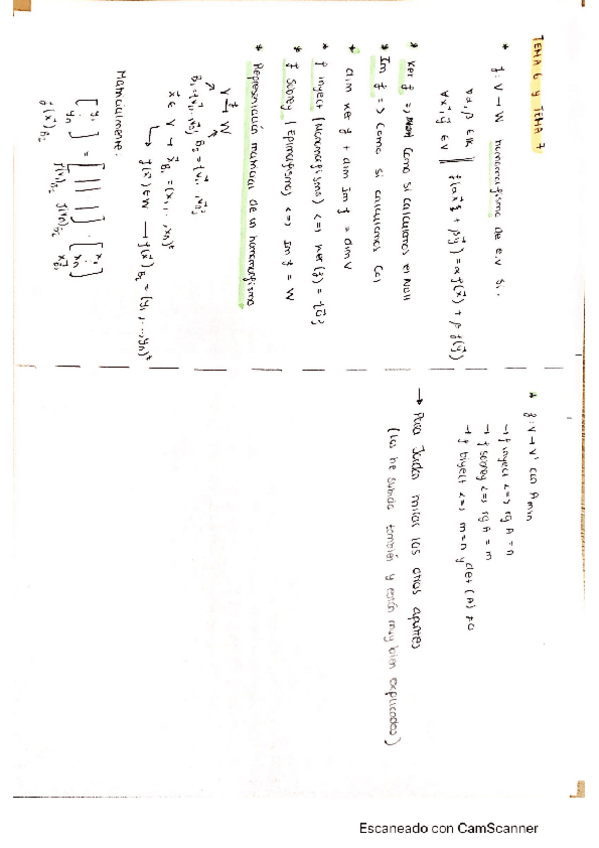 TEMA 6 y TEMA 7
* f: V → W homomorfismo de e.v si:
∀α, β ∈ K
∀x⃗, y⃗ ∈ V
f(αx⃗ + βy⃗) = α f(x⃗) + β f(y⃗)
* Ker f => como si calculamos el Null
* Im f => como si calculamos Col
* dim Ker f + dim Im f = dim V
* f inyect (Monomorfismo) <=> Ker(f) = {0⃗}
* f Sobrey (Epimorfismo) <=> Im f = W
* Representación matricial de un homomorfismo
V →f W
x⃗ ∈ V → x⃗B₁ = (x₁, ..., xₙ)ᵗ
f(x⃗) ∈ W → f(x⃗)B₂ = (y₁, ..., yₙ)ᵗ
Matricialmente:
* f: V → V' con Amxn
→ f inyect <=> rg A = n
→ f sobrey <=> rg A = m
→ f biyect <=> m = n y det(A) ≠ 0
→ Para Jordan mirar los otros apuntes
(los he subido también y están muy bien explicados)
Escaneado con CamScanner